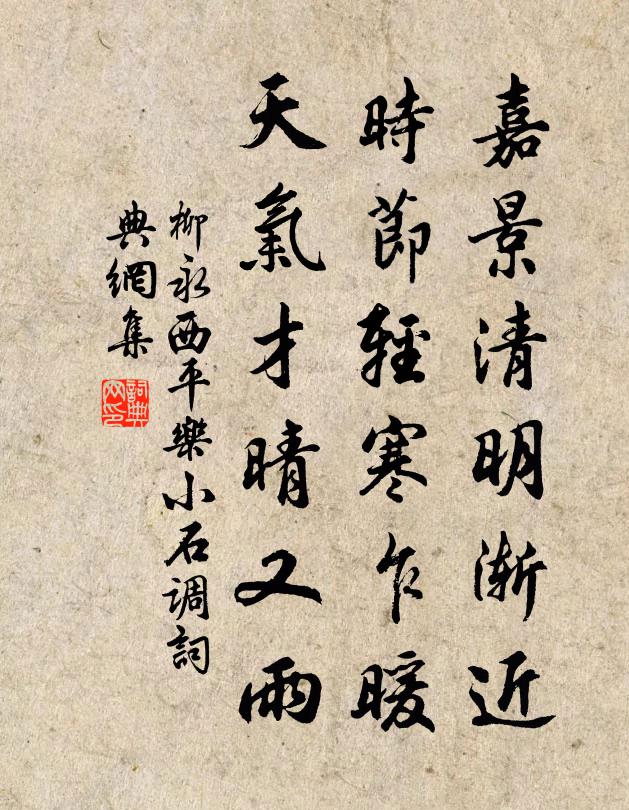 嘉景清明漸近
時節輕寒乍暖
天氣才晴又雨
柳永西平樂小石調詞
典網集
詞典網印